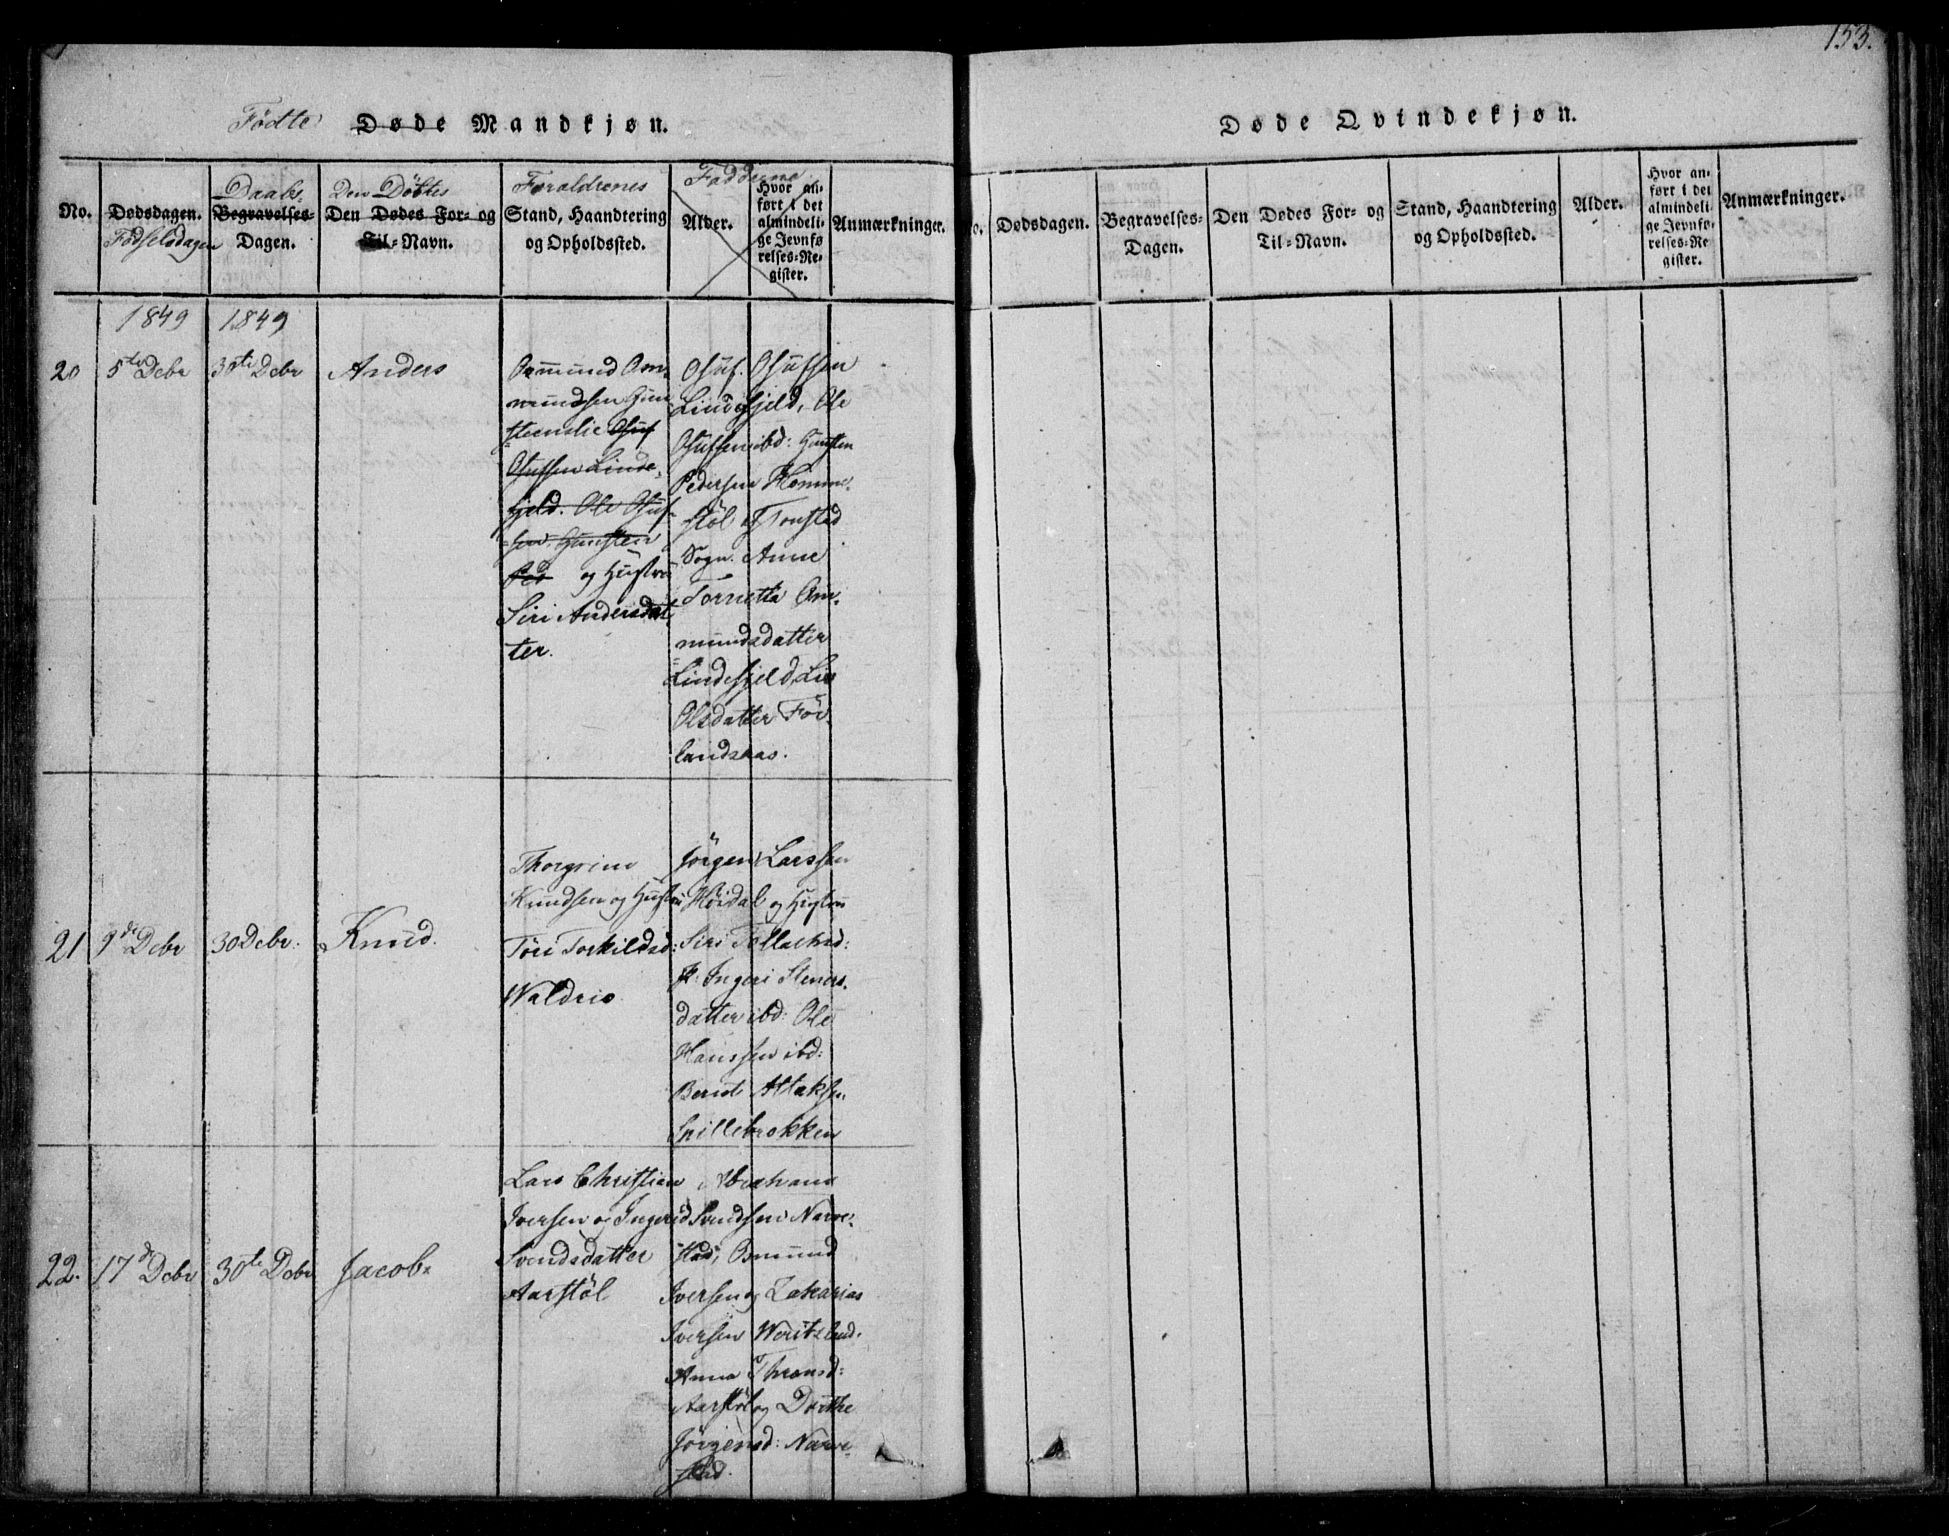 153.
Fødte Døde Mandkjøn.
No.
Dødsdagen.
Fødselsdagen
Daabs-
Begravelses-
Dagen.
Den Døbtes
Den Dødes For- og
Til-Navn.
Forældrenes
Stand, Haandtering
og Opholdssted.
Fadderne
Alder.
Hvor an-
ført i det
almindeli-
ge Jevnfø
relses-Re-
gister.
Anmærkninger.
1849 1849
20 5te Debr 30te Debr Anders
Ommund Om-
mundsen
Osuf
Osufsen Linde-
fjeld. Ole Osuf-
sen. Gunsten
Ped og Hustru
Siri Andersdat
ter.
Osuf. Osufsen
Lindefjeld, Ole
Osufsen ibd: Gunsten
Pedersen Homme-
støl af Tonstad
Sogn. Anne
Tometta Om-
mundsdatter
Lindefjeld, Liv
Olsdatter Før-
landsaas.
21 9de Debr 30 Debr. Knud.
Thorgrim
Knudsen og Hustru
Töri Torkildsd:
Waldris
Jörgen Larssen
Höidal og Hustru
Siri Tollachsd:
P. Ingeri Steners-
datter ibd: Ole
Hanssen ibd:
Berent Attaksn.
Spillebrokken
22. 17de Debr 30te Debr Jacob.
Lars Christian
Iversen og Ingerid
Svendsdatter
Aarstöl
Abraham
Svendsen Narve-
stad, Osmund
Iversen og Zakarias
Iversen Weritsland.
Anna Thronsd:
Aarstöl og Dorthe
Jörgensd: Narve-
stad.
Døde Qvindekjøn.
No.
Dødsdagen.
Begravelses-
Dagen.
Den Dødes For- og
Til-Navn.
Stand, Haandtering
og Opholdssted.
Alder.
Hvor an-
ført i det
almindeli-
ge Jevnfø-
relses-Re
gister.
Anmærkninger.